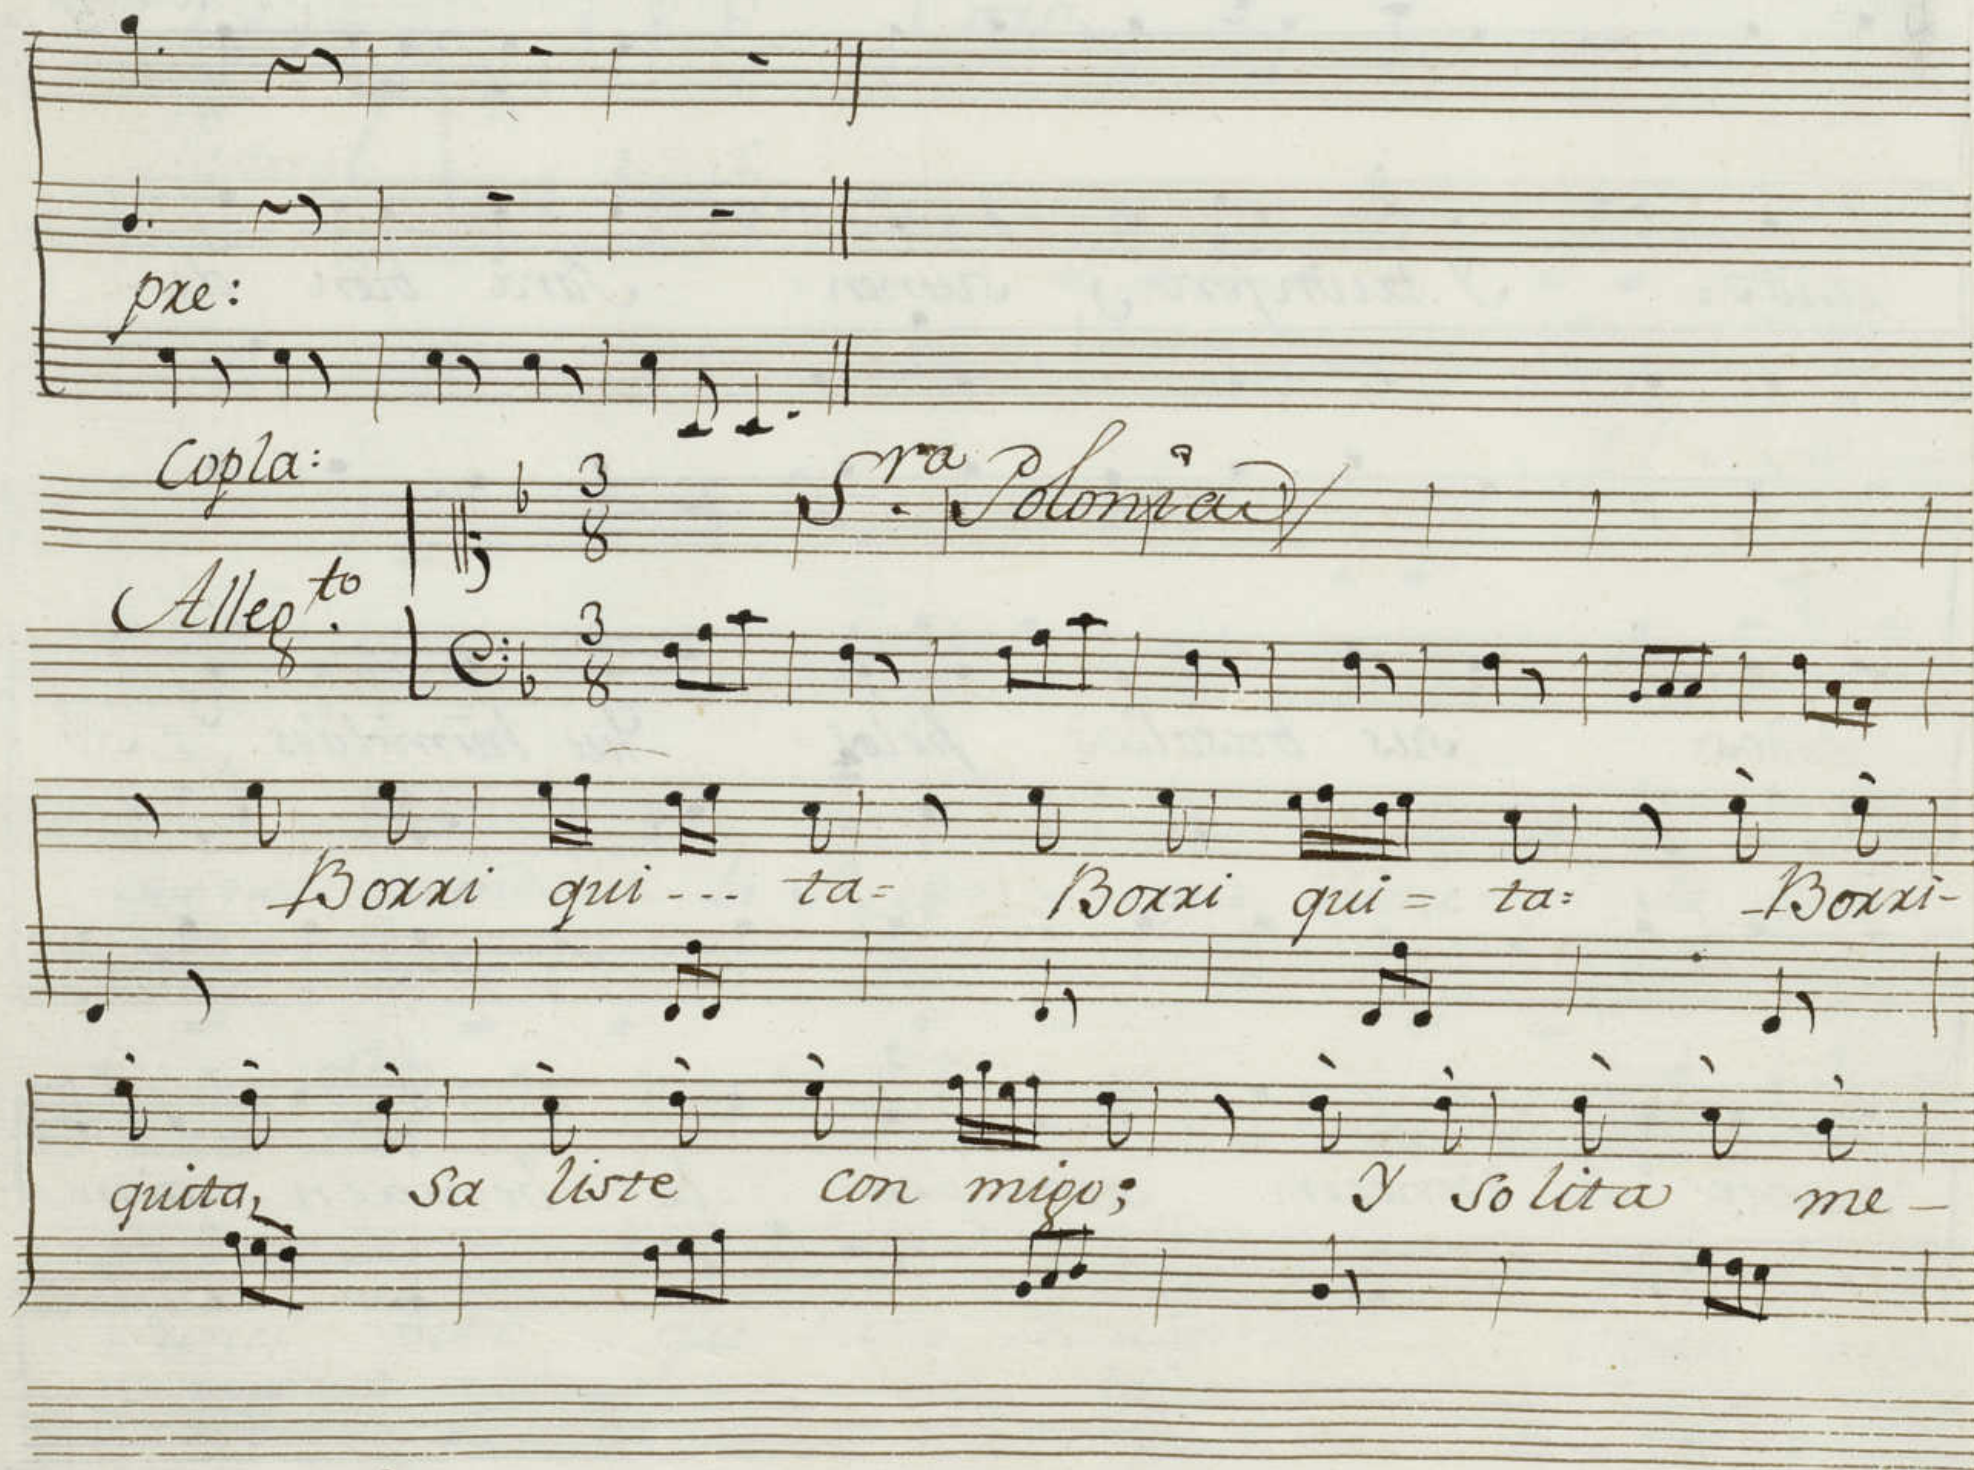 pre:
Copla:
3 8 S.ra Polonia
Alleg.to
3 8
Borri qui --- ta= Borri qui = ta: Borri-
quita, sa liste con migo; Y solita me -